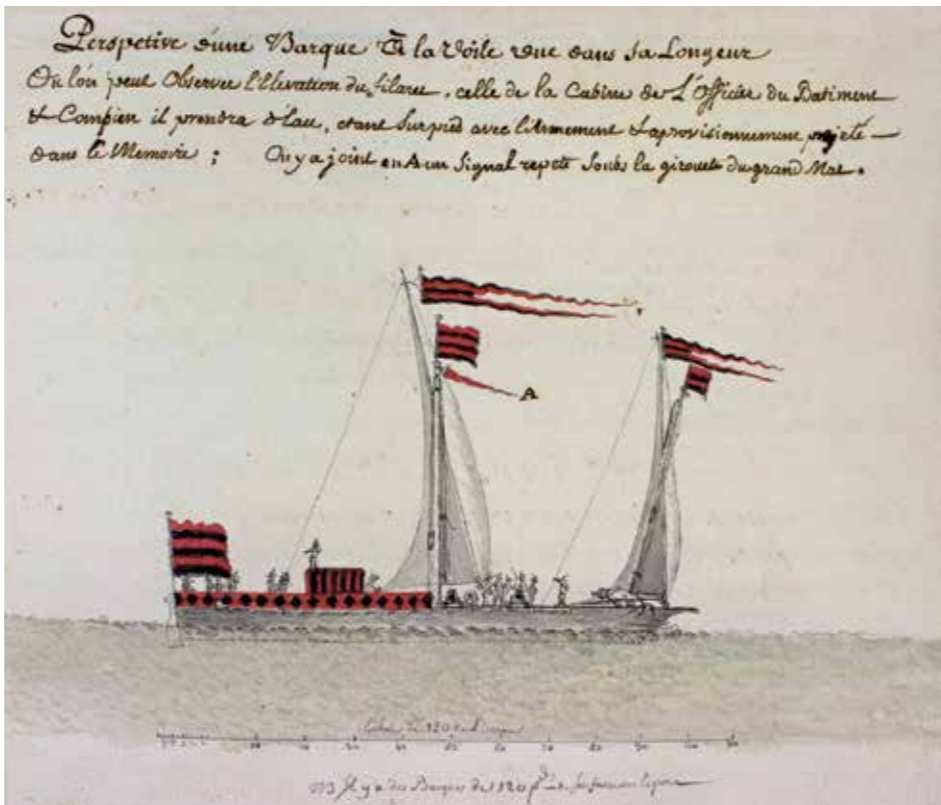 Perspetive d'une Barque à la Voile vue dans sa Longeur
Où l'on peut Observer l'Elevation du filaret, celle de la Cabine de L'Officier du Batiment
& Compien il prendra d'eau, etant sur pied avec l'Armement & aprovisionnement projeté
dans le Memoire ; On y a joint en A un Signal repeté soubs la girouete du grand Mat.
A
NB Il y a des Barques de 120